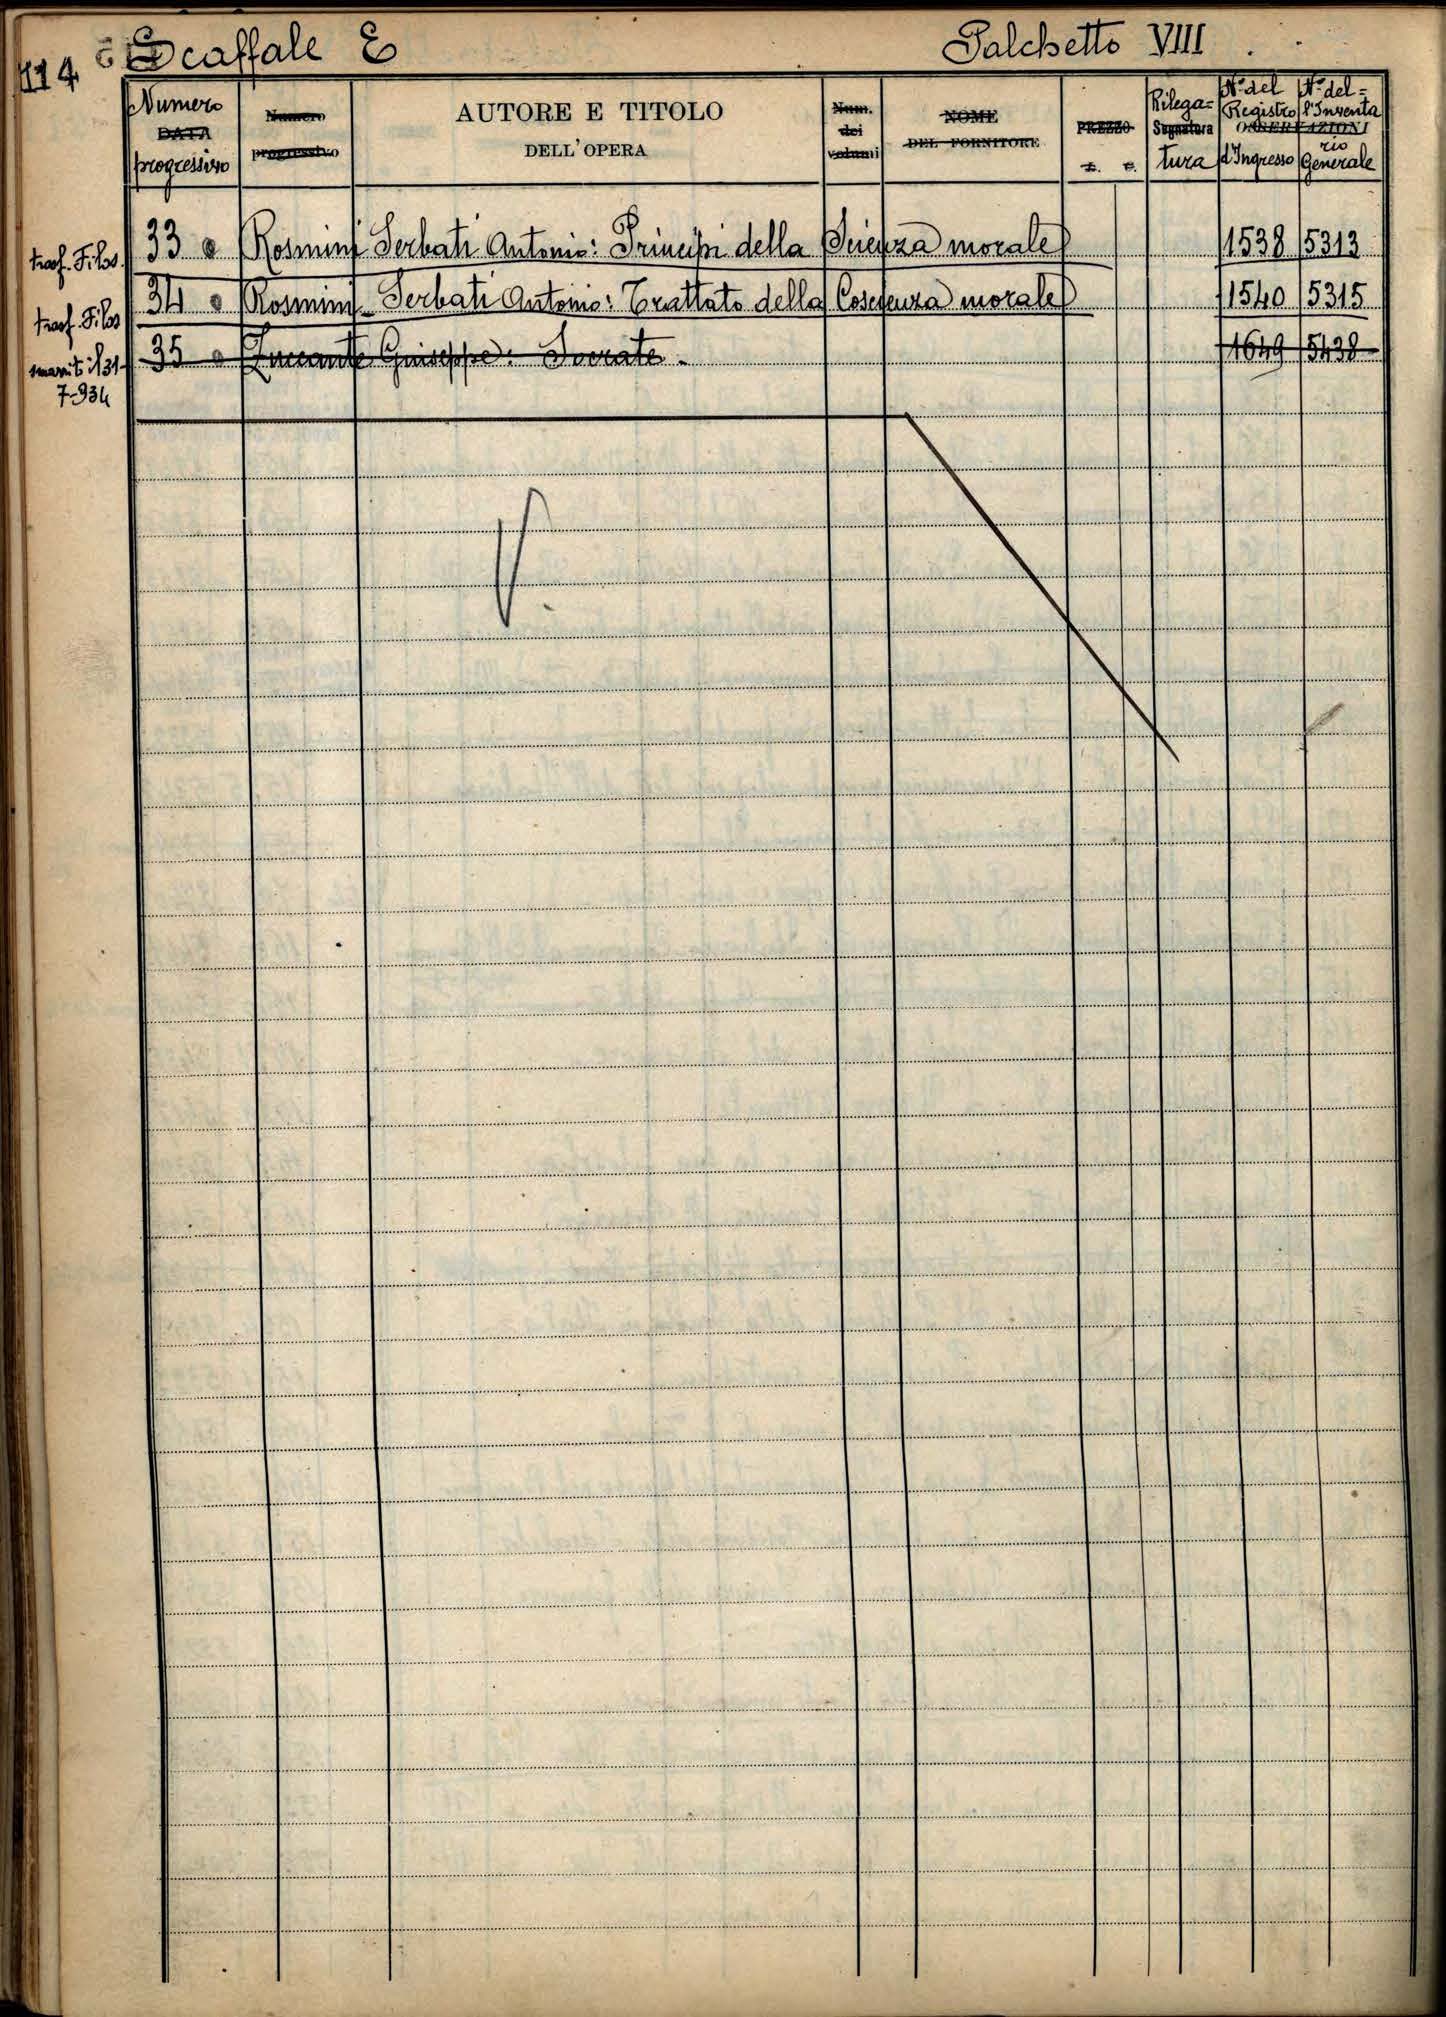 114 Scaffale E Palchetto VIII.
Numero DATA progressivo
Numero progressivo
AUTORE E TITOLO
DELL'OPERA
Num. dei volumi
NOME
DEL FORNITORE
PREZZO
L. C.
Rilega=
Segnatura
tura
OSSERVAZIONI
N.o del Registro d'Ingresso
N.o del= l'Inventa rio Generale
trasf. Filos. 33 Rosmini Serbati Antonio: Principi della Scienza morale 1538 5313
trasf. Filos 34 Rosmini-Serbati Antonio: Trattato della Coscienza morale 1540 5315
smarrito il 31-7-934 35 Zuccante Giuseppe: Socrate. 1649 5438